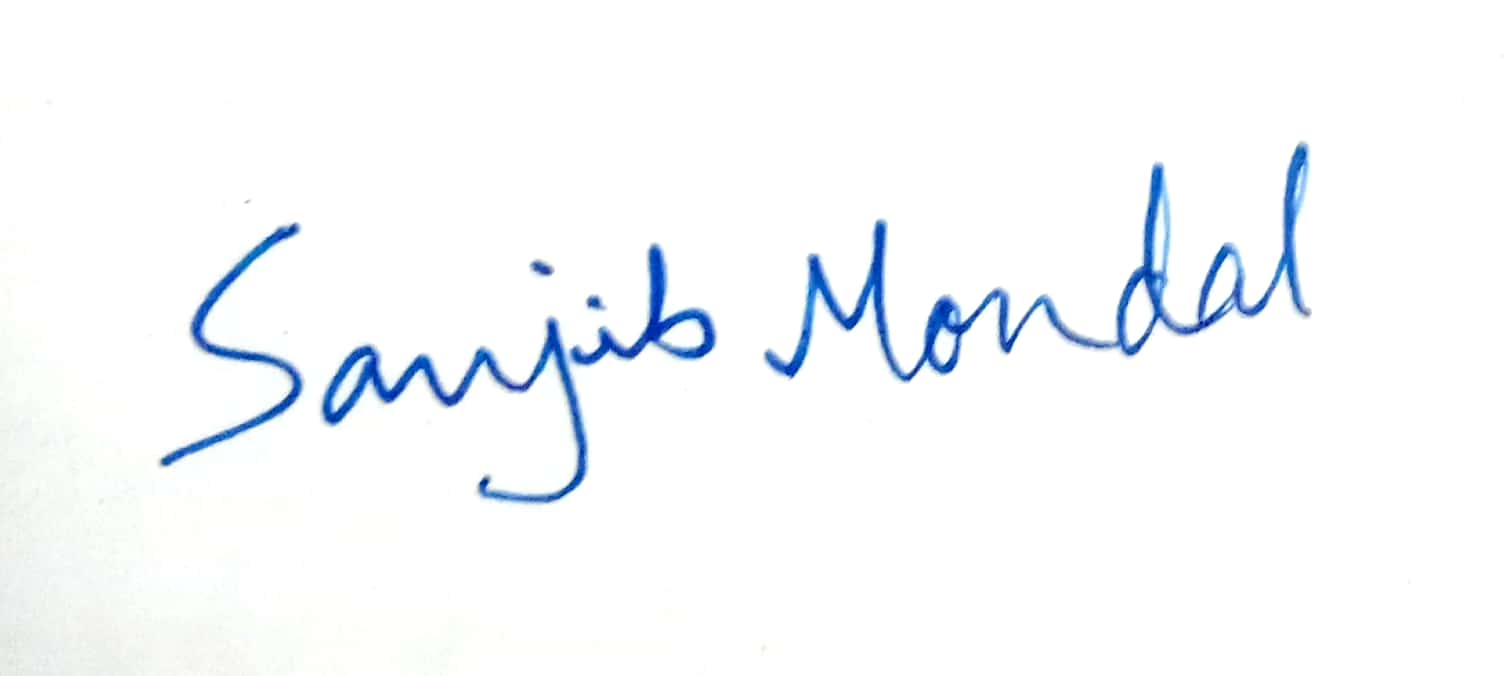 Sanjib Mondal